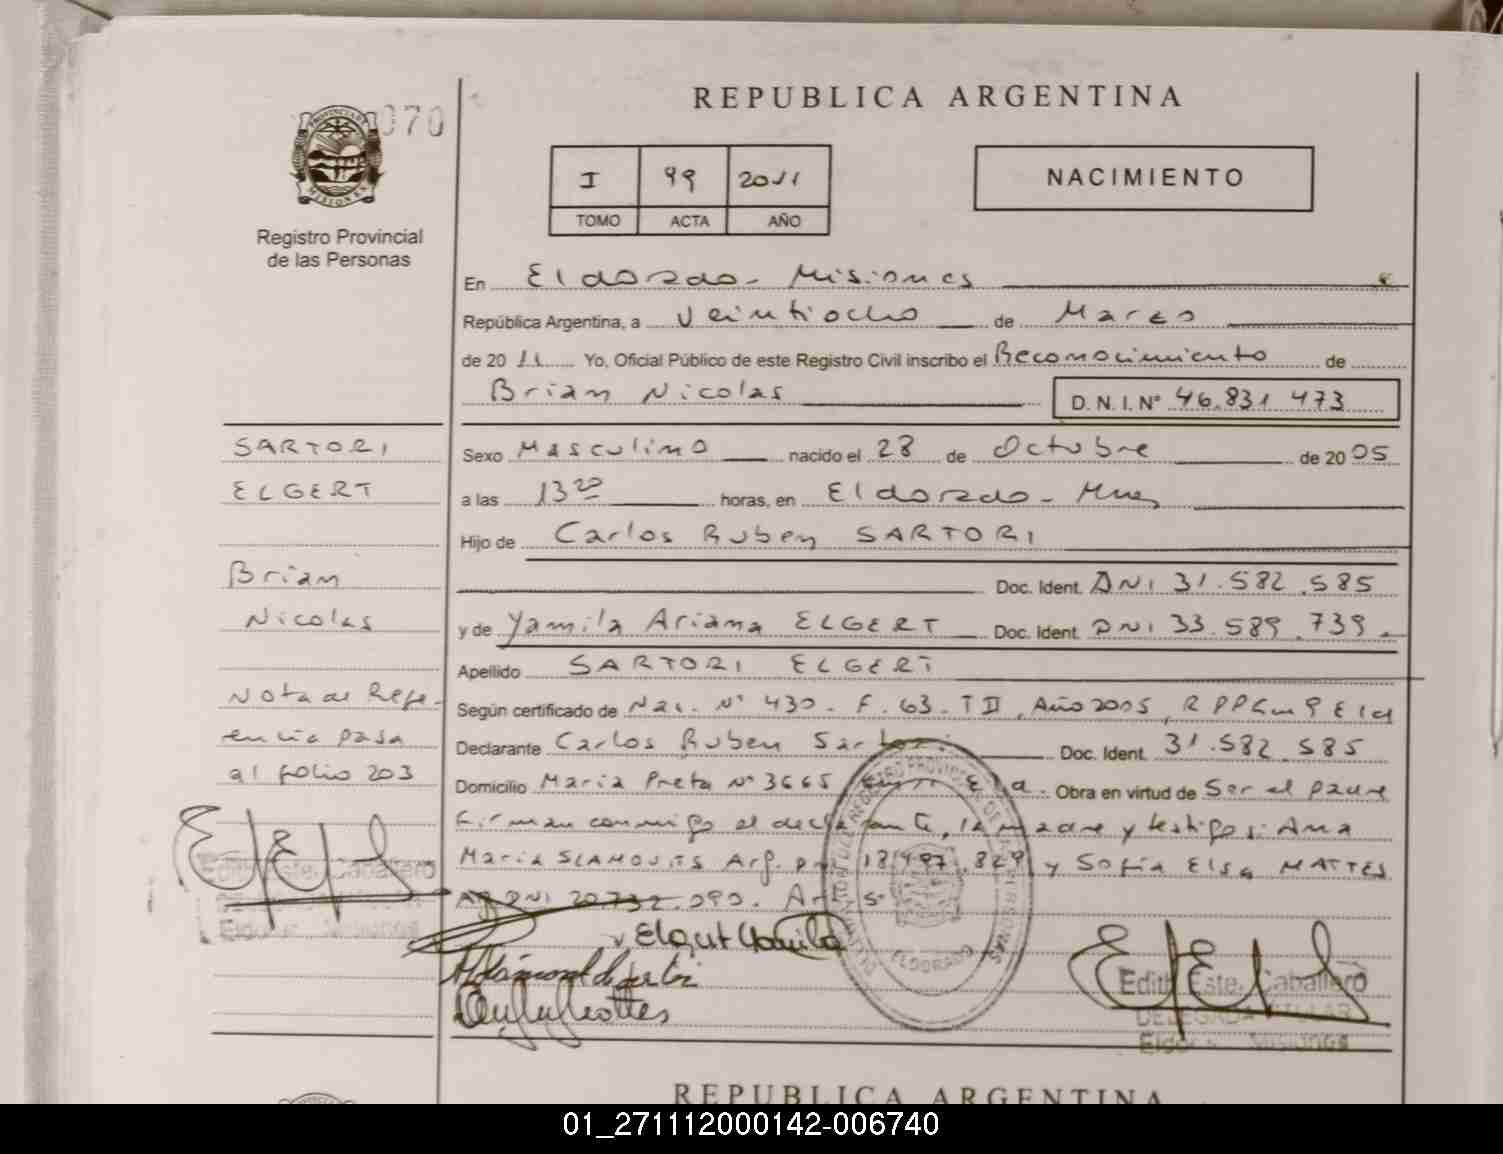 070
REPUBLICA ARGENTINA
I 99 2011
TOMO ACTA AÑO
NACIMIENTO
Registro Provincial
de las Personas
En Eldorado - Misiones
República Argentina, a Veintiocho de Marzo
de 2011 Yo, Oficial Público de este Registro Civil inscribo el Reconocimiento de
Brian Nicolas D.N.I. Nº 46.831 473
SARTORI
ELGERT
Brian
Nicolas
Nota de Refe-
rencia pasa
al folio 203
Sexo Masculino nacido el 28 de Octubre de 2005
a las 13 20 horas, en Eldorado - Mnes
Hijo de Carlos Ruben SARTORI
Doc. Ident. DNI 31.582.585
y de Yamila Ariana ELGERT Doc. Ident. DNI 33.589.739.
Apellido SARTORI ELGERT
Según certificado de Nac. Nº 430 - F. 63 - T II, Año 2005, RPP
Declarante Carlos Ruben Sartori Doc. Ident. 31.582.585
Domicilio Maria Preta Nº 3665 Obra en virtud de Ser el padre
Firman conmigo el declarante, la madre y testigos: Ana
Maria Arg. 18.497.829 y Sofia Elsa MATTES
DNI 20.732.090.
Elgert Yamila
ELDORADO
Edith Este. Caballero
DELEGADA TITULAR
Eldorado Misiones
Edith Este. Caballero
Misiones
REPUBLICA ARGENTINA
01_271112000142-006740